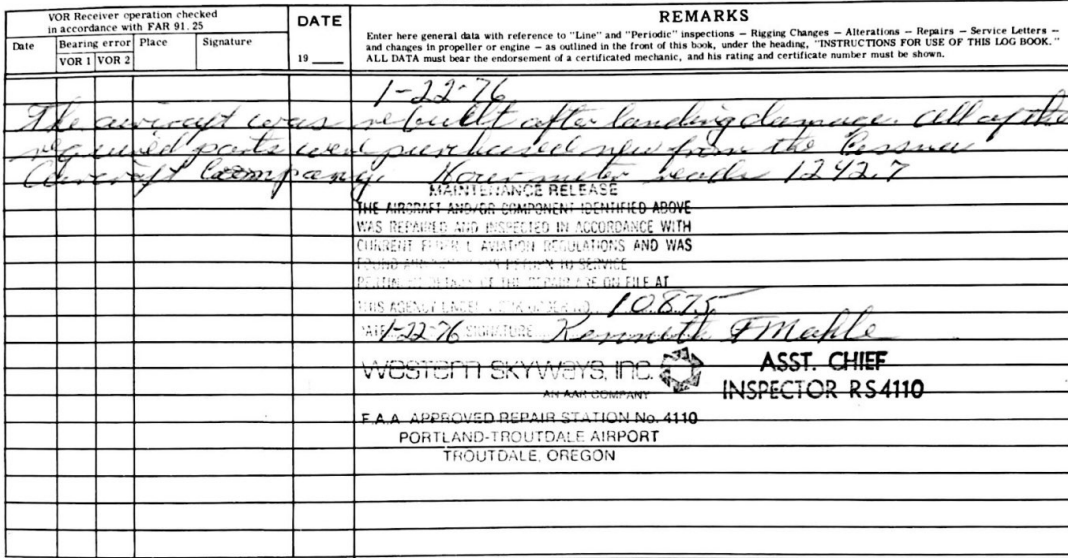 VOR Receiver operation checked
in accordance with FAR 91.25
Date
Bearing error
VOR 1
VOR 2
Place
Signature
DATE
19
REMARKS
Enter here general data with reference to "Line" and "Periodic" inspections – Rigging Changes – Alterations – Repairs – Service Letters –
and changes in propeller or engine – as outlined in the front of this book, under the heading, "INSTRUCTIONS FOR USE OF THIS LOG BOOK."
ALL DATA must bear the endorsement of a certificated mechanic, and his rating and certificate number must be shown.
1-22-76
The aircraft was rebuilt after landing damage. All of the
required parts were purchased new from the Cessna
Aircraft Company. Hour meter reads 1242.7
MAINTENANCE RELEASE
THE AIRCRAFT AND/OR COMPONENT IDENTIFIED ABOVE
WAS REPAIRED AND INSPECTED IN ACCORDANCE WITH
CURRENT FEDERAL AVIATION REGULATIONS AND WAS
FOUND RETURN TO SERVICE
DETAILS OF THE REPAIR ARE ON FILE AT
THIS AGENCY UNDER 10875
DATE 1-22-76 SIGNATURE Kenneth F Mahle
WESTERN SKYWAYS, INC.
AN AAR COMPANY
ASST. CHIEF
INSPECTOR RS4110
F.A.A. APPROVED REPAIR STATION No. 4110
PORTLAND-TROUTDALE AIRPORT
TROUTDALE, OREGON